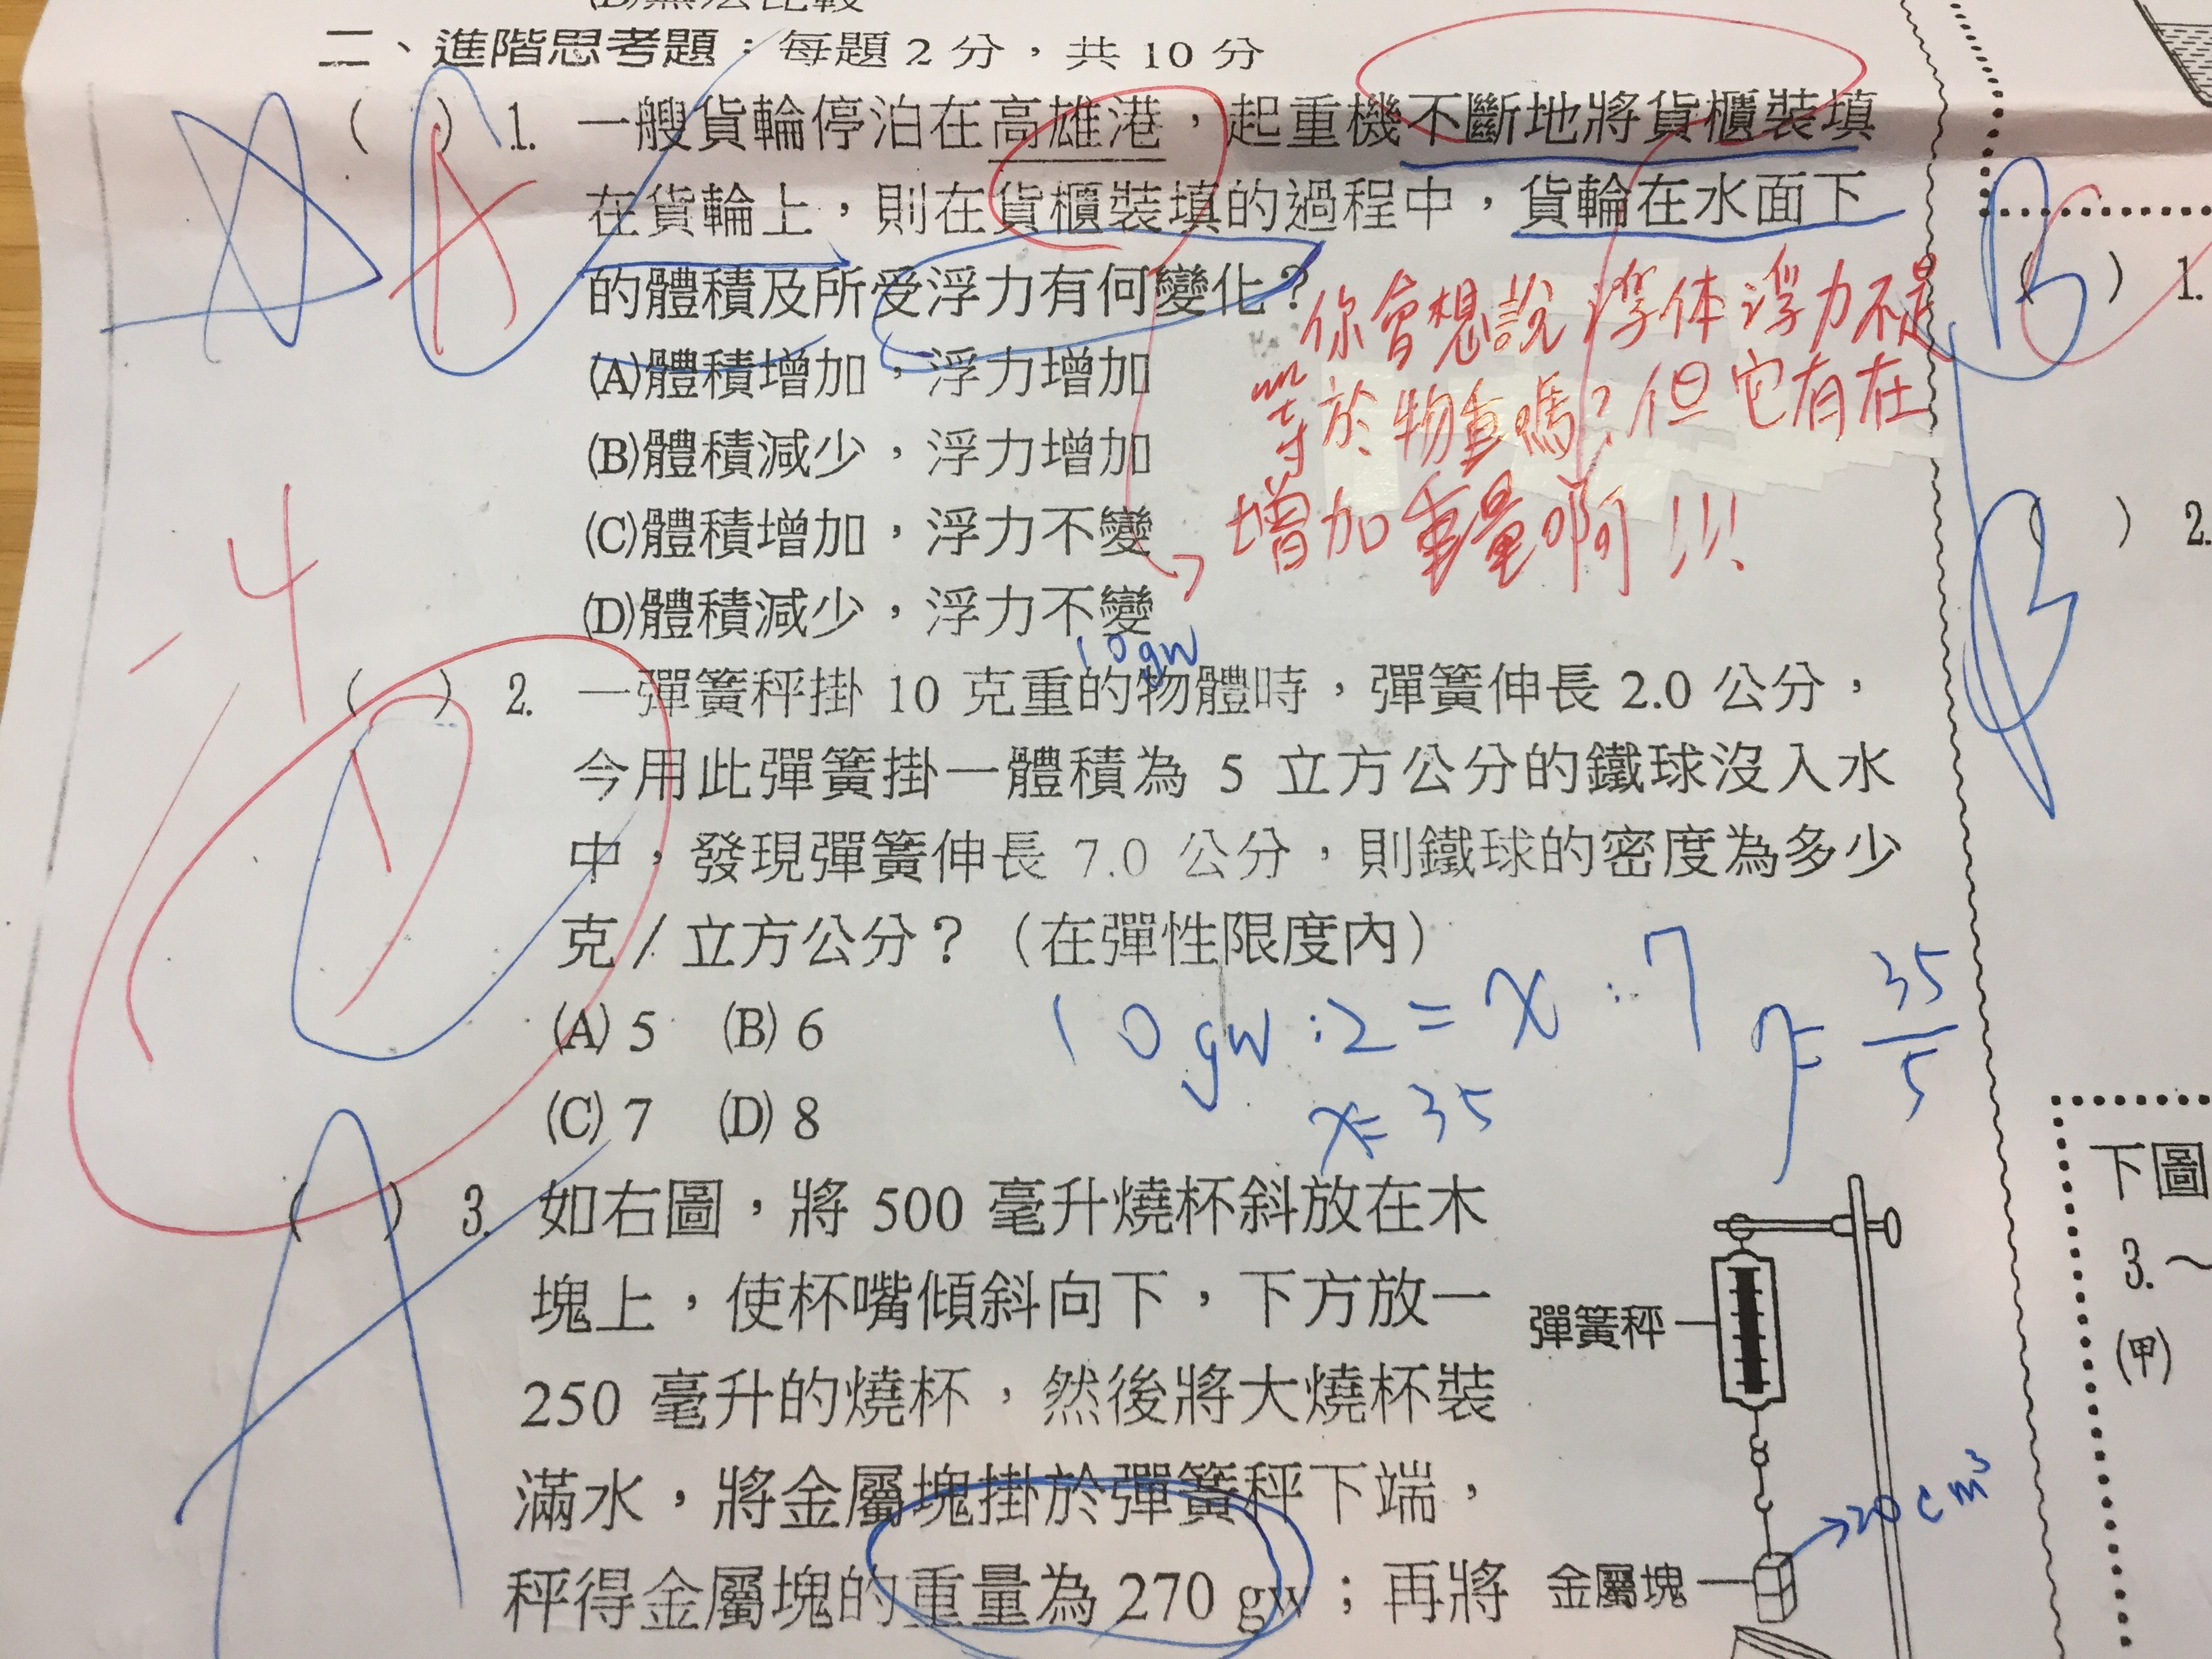 二、進階思考題：每題 2 分，共 10 分
( ) 1. 一艘貨輪停泊在高雄港，起重機不斷地將貨櫃裝填
在貨輪上，則在貨櫃裝填的過程中，貨輪在水面下
的體積及所受浮力有何變化？
(A)體積增加，浮力增加
(B)體積減少，浮力增加
(C)體積增加，浮力不變
(D)體積減少，浮力不變
A
你會想說浮体浮力不是
等於物重嗎？但它有在
增加重量啊!!!
-4
10gw
( ) 2. 一彈簧秤掛 10 克重的物體時，彈簧伸長 2.0 公分，
今用此彈簧掛一體積為 5 立方公分的鐵球沒入水
中，發現彈簧伸長 7.0 公分，則鐵球的密度為多少
克／立方公分？（在彈性限度內）
(A) 5 (B) 6
(C) 7 (D) 8
D
10gw:2=x:7
x=35
35
5
A
( ) 3. 如右圖，將 500 毫升燒杯斜放在木
塊上，使杯嘴傾斜向下，下方放一
250 毫升的燒杯，然後將大燒杯裝
滿水，將金屬塊掛於彈簧秤下端，
秤得金屬塊的重量為 270 gw；再將
彈簧秤
20cm³
金屬塊
B
( ) 1.
B
( ) 2.
下圖
3.～
(甲)